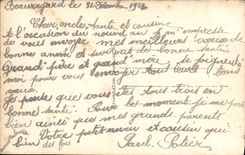 Beauregard le 31 Décembre 1902
Chers oncle, tante et cousine
A l'occasion du nouvel an je m'empresse
de vous envoyer mes meilleurs voeux de
bonne année et surtout de bonne santé
Grand père et grand'mère se joignent
moi pour vous envoyer tout leurs bons
voeux.
Je pense que vous êtes tous trois en
bonne santé. Pour le moment je me porte
bien ainsi que mes grands parents
Votre petit neveu et cousin que
bien des fois Paul Potier